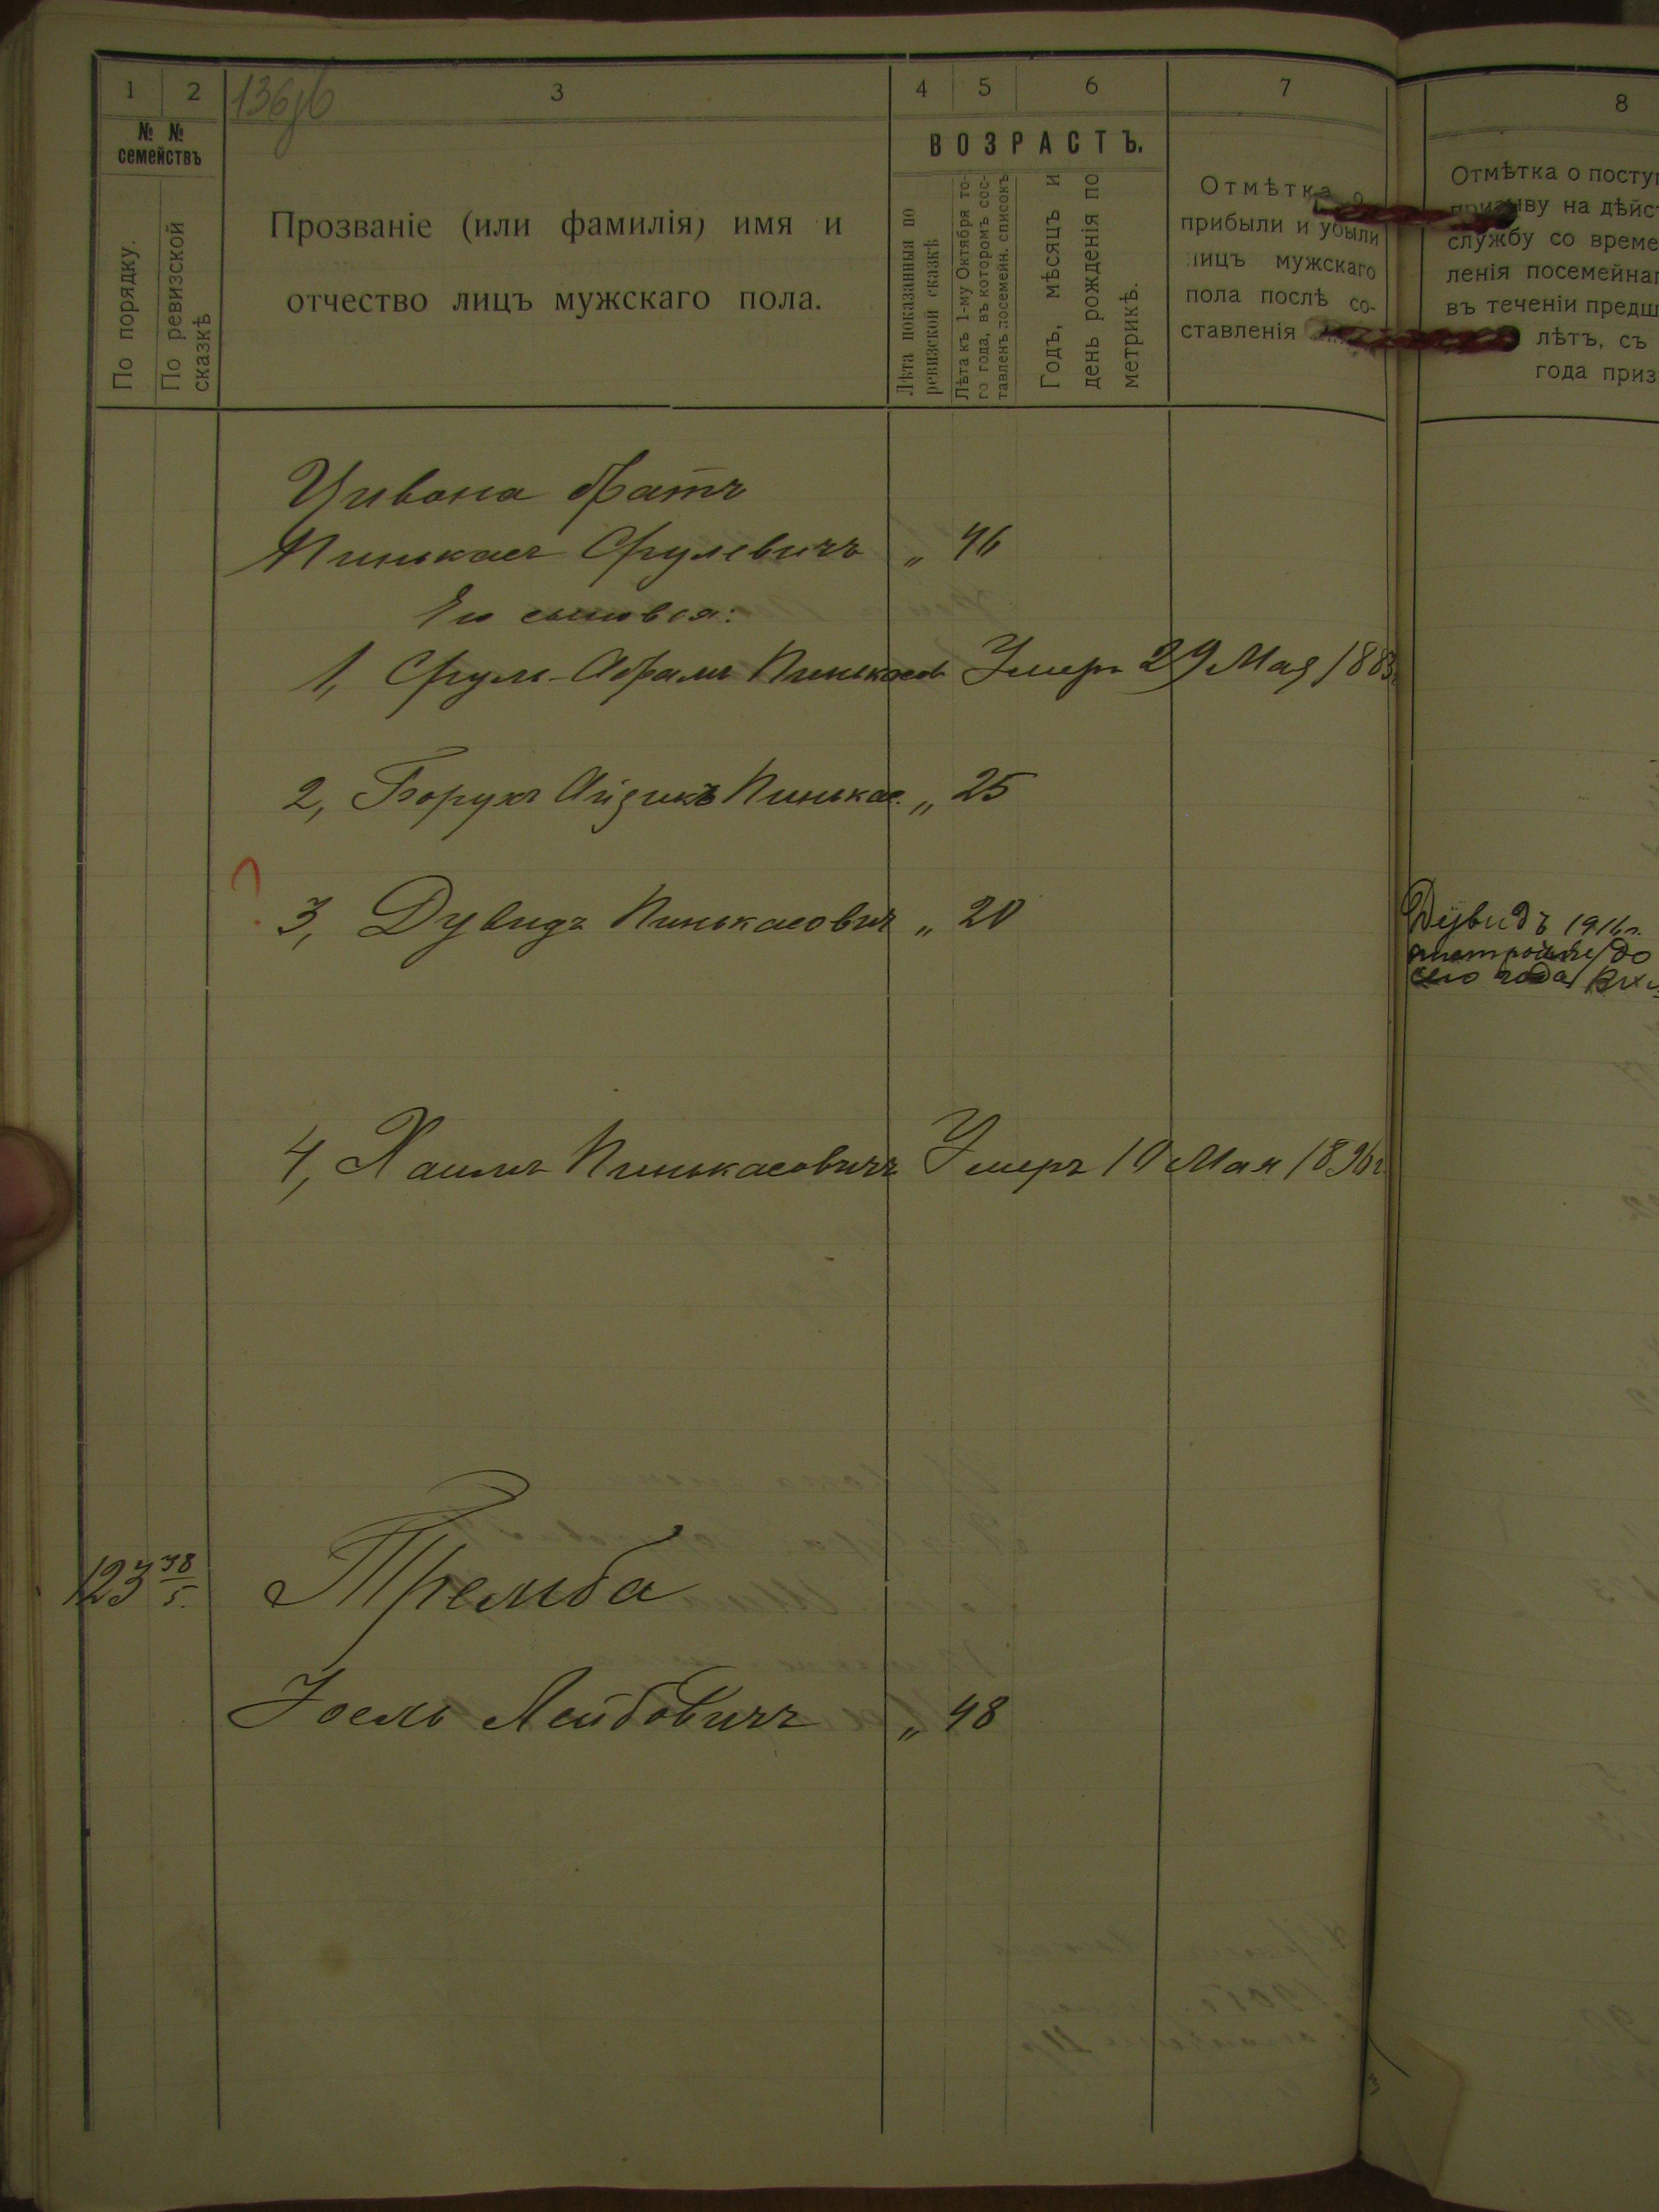 1 2 136об 3 4 5 6 7
№ № семействъ
По порядку.
По ревизской сказкѣ
Прозваніе (или фамилія) имя и
отчество лицъ мужскаго пола.
ВОЗРАСТЪ.
Лѣта показанныя по
ревизской сказкѣ
Лѣта къ 1-му Октября то-
го года, въ которомъ сос-
тавленъ посемейн. списокъ
Годъ, мѣсяцъ и
день рожденія по
метрикѣ.
Отмѣтка о
прибыли и убыли
лицъ мужскаго
пола послѣ со-
ставленія
Цивона братъ
Пинькасъ Срулевичъ „ 46
Его сыновья:
1, Сруль-Абрамъ Пинькасов Умеръ 29 Мая 1883
2, Борухъ Айзикъ Пинькас. „ 25
? 3, Дувидъ Пинькасович „ 20
4, Хаимъ Пинькасовичъ Умеръ 10 Мая 1896 г.
123 38/5. Тремба
Іосль Лейбовичъ „ 48
8
Отмѣтка о посту
призыву на дѣйс
службу со време
ленія посемейна
въ теченіи предш
лѣтъ, съ
года приз
Дувидъ 1916 г.
до
сего года